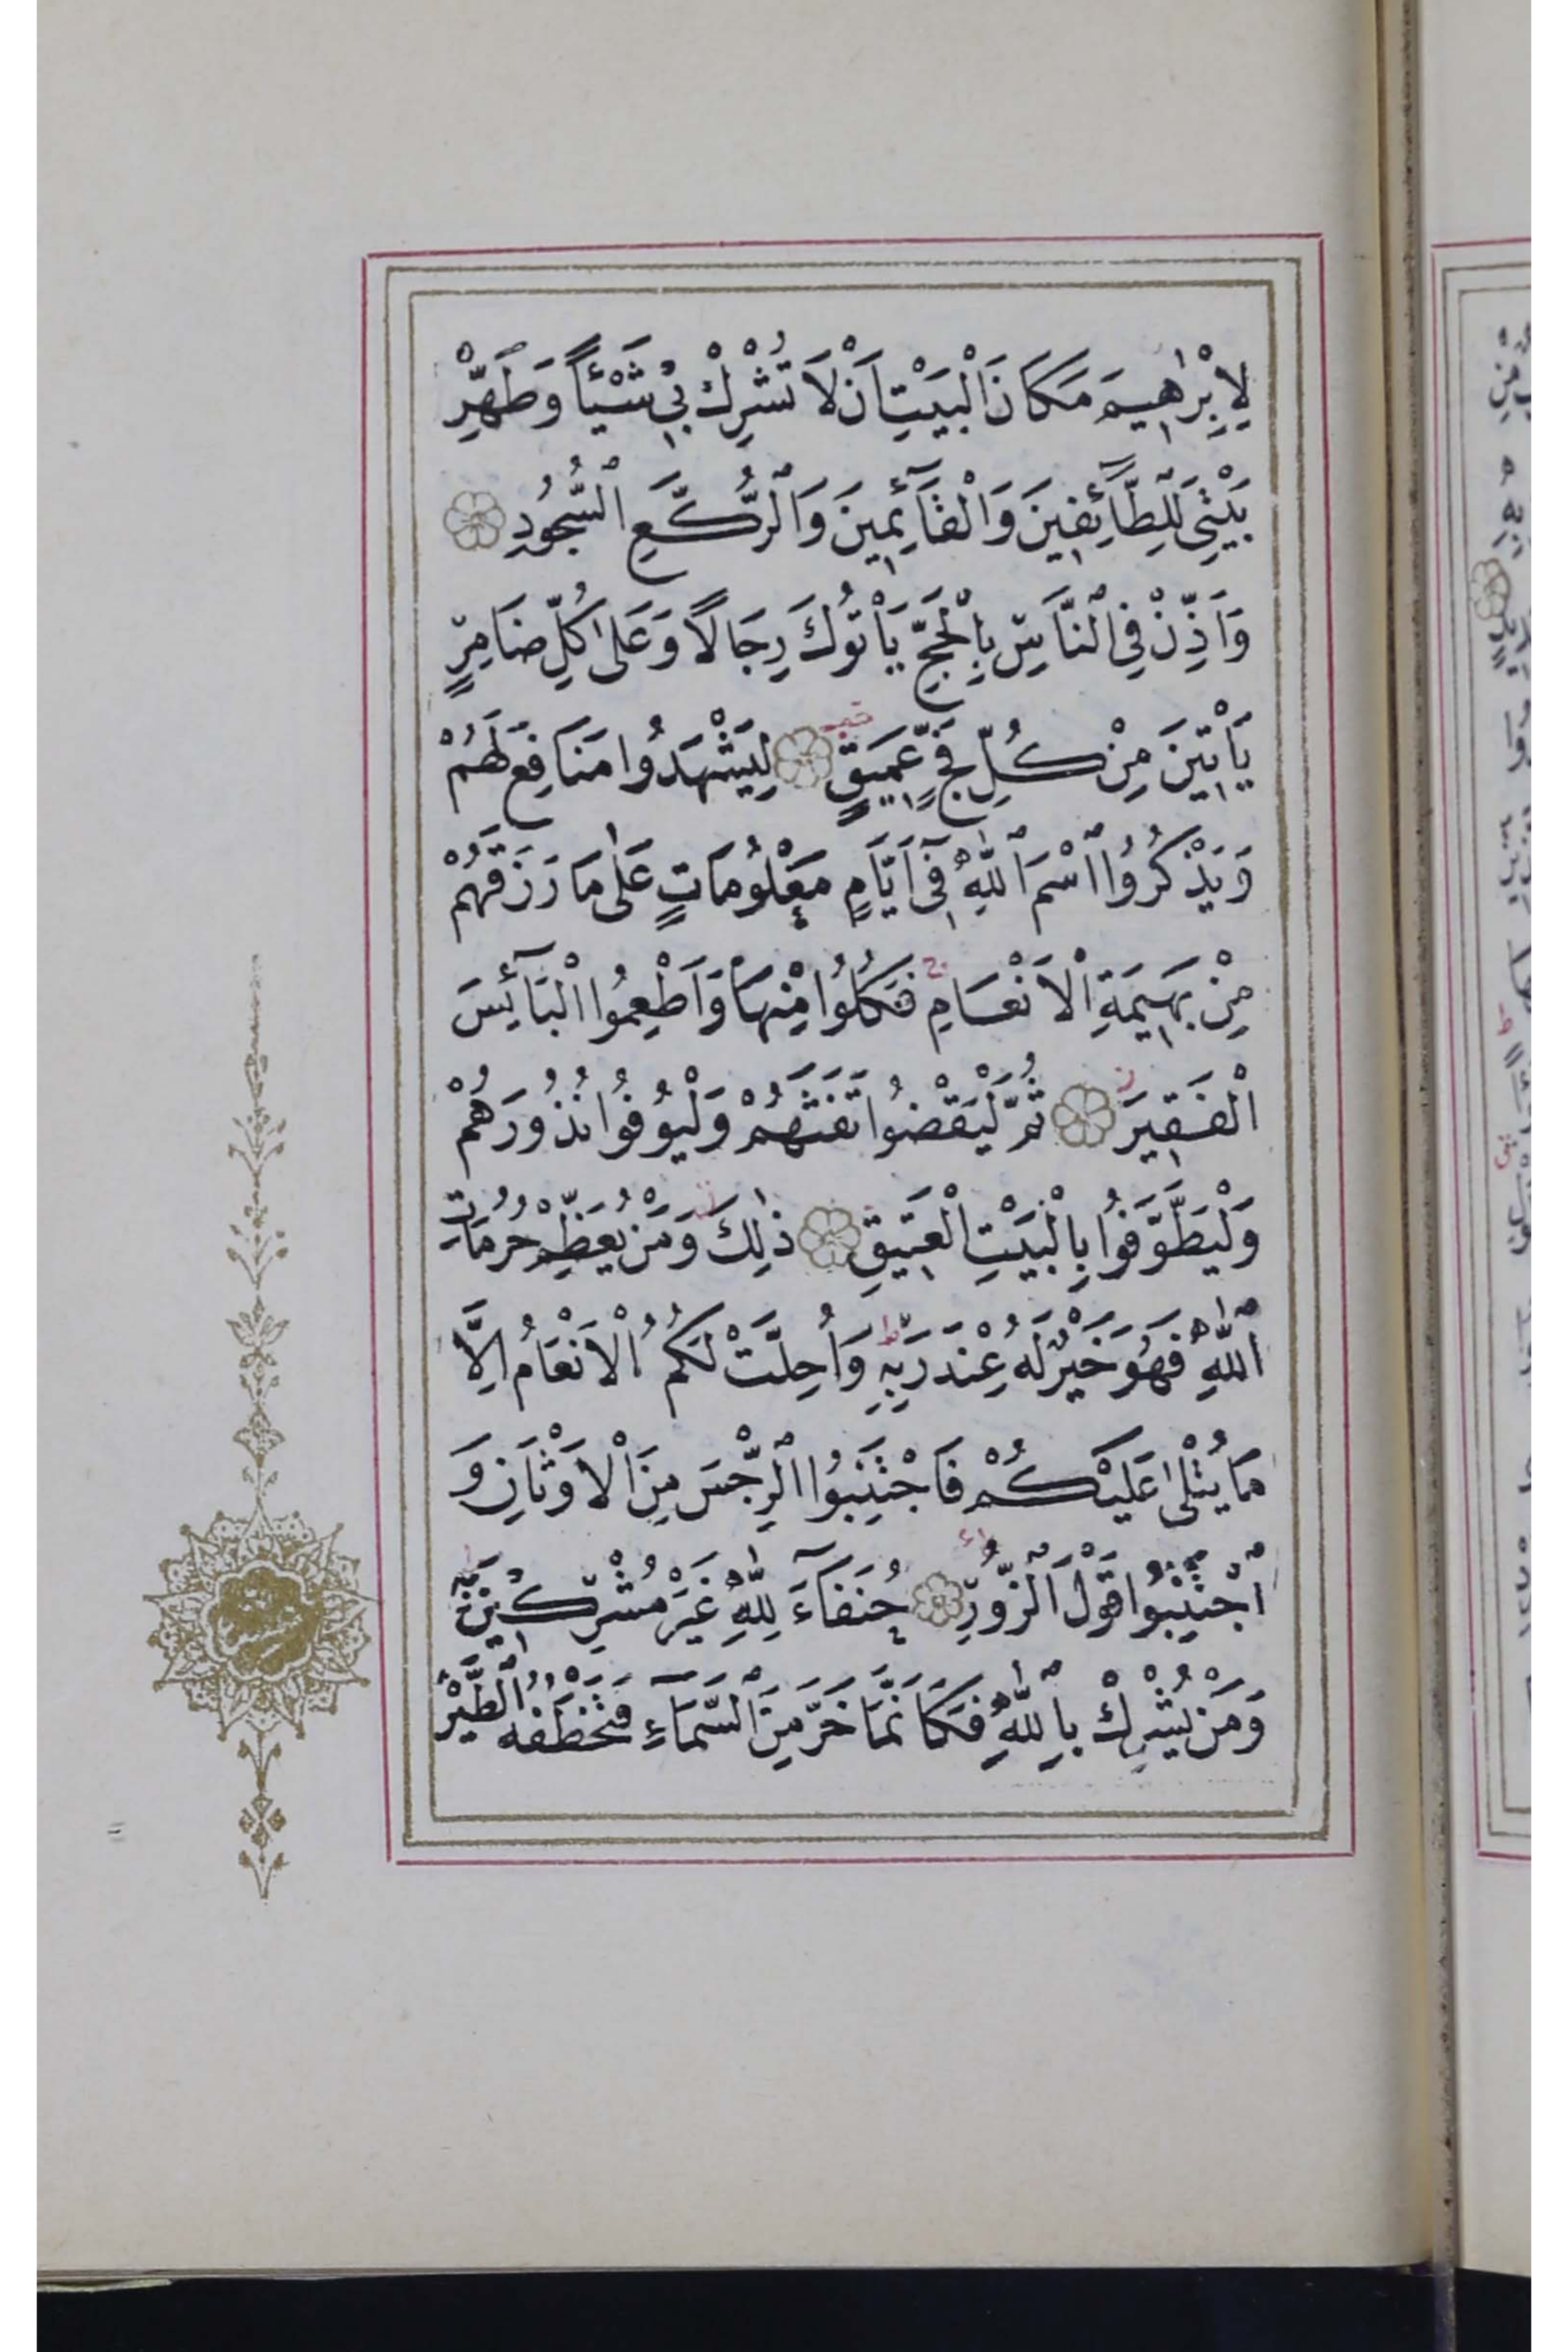 لِاِبْرٰهِيمَ مَكَانَ الْبَيْتِ اَنْ لَا تُشْرِكْ بِي شَيْئًا وَطَهِّرْ
بَيْتِيَ لِلطَّآئِفِينَ وَالْقَآئِمِينَ وَالرُّكَّعِ السُّجُودِ
وَاَذِّنْ فِي النَّاسِ بِالْحَجِّ يَأْتُوكَ رِجَالًا وَعَلٰى كُلِّ ضَامِرٍ
يَأْتِينَ مِنْ كُلِّ فَجٍّ عَمِيقٍ لِيَشْهَدُوا مَنَافِعَ لَهُمْ
وَيَذْكُرُوا اسْمَ اللّٰهِ فِٓي اَيَّامٍ مَعْلُومَاتٍ عَلٰى مَا رَزَقَهُمْ
مِنْ بَهِيمَةِ الْاَنْعَامِ فَكُلُوا مِنْهَا وَاَطْعِمُوا الْبَآئِسَ
الْفَقِيرَ ثُمَّ لْيَقْضُوا تَفَثَهُمْ وَلْيُوفُوا نُذُورَهُمْ
وَلْيَطَّوَّفُوا بِالْبَيْتِ الْعَتِيقِ ذٰلِكَ وَمَنْ يُعَظِّمْ حُرُمَاتِ
اللّٰهِ فَهُوَ خَيْرٌ لَهُ عِنْدَ رَبِّهِ وَاُحِلَّتْ لَكُمُ الْاَنْعَامُ اِلَّا
مَا يُتْلٰى عَلَيْكُمْ فَاجْتَنِبُوا الرِّجْسَ مِنَ الْاَوْثَانِ وَ
اجْتَنِبُوا قَوْلَ الزُّورِ حُنَفَآءَ لِلّٰهِ غَيْرَ مُشْرِكِينَ بِهِ
وَمَنْ يُشْرِكْ بِاللّٰهِ فَكَاَنَّمَا خَرَّ مِنَ السَّمَآءِ فَتَخْطَفُهُ الطَّيْرُ